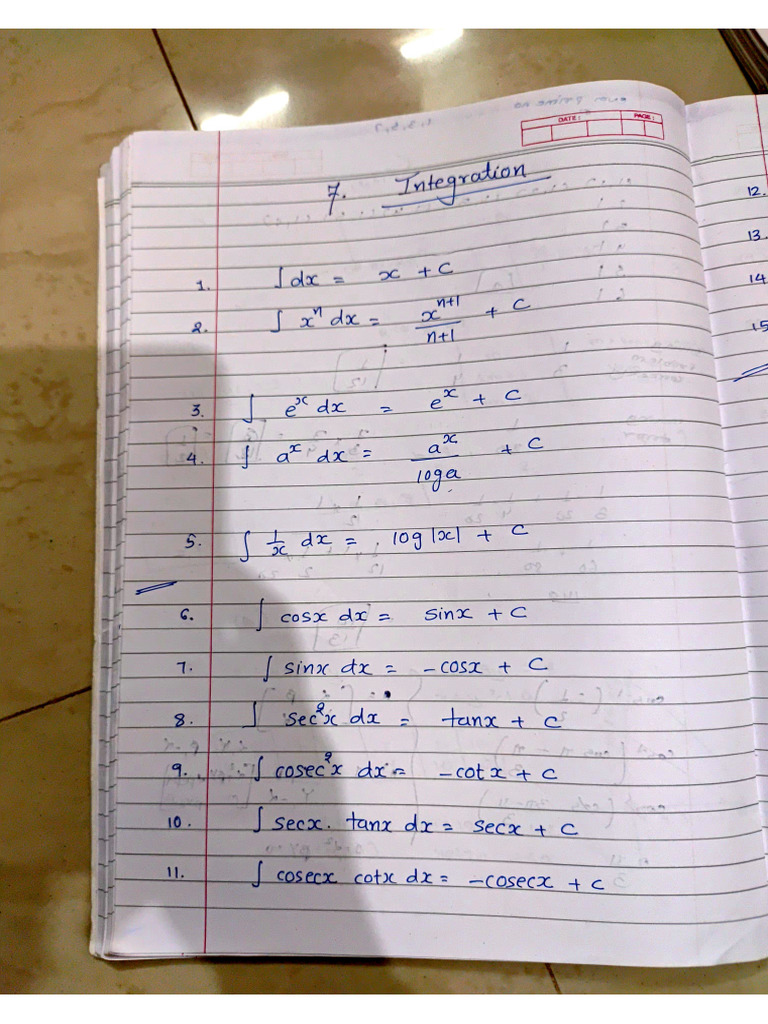 DATE: PAGE:
7. Integration
1. ∫dx = x + c
2. ∫ xⁿ dx = xⁿ⁺¹/n+1 + c
3. ∫ eˣ dx = eˣ + c
4. ∫ aˣ dx = aˣ/loga + c
5. ∫ 1/x dx = log|x| + c
6. ∫ cosx dx = sinx + c
7. ∫ sinx dx = -cosx + c
8. ∫ sec²x dx = tanx + c
9. ∫ cosec²x dx = -cotx + c
10. ∫ secx. tanx dx = secx + c
11. ∫ cosecx cotx dx = -cosecx + c
12.
13.
14
15